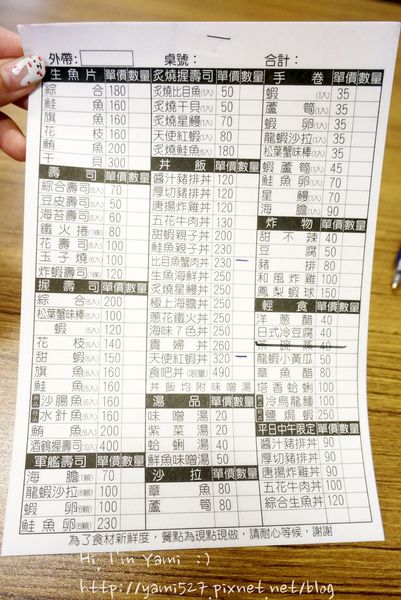 外帶： 桌號： 合計：
生魚片 單價 數量
綜合 180
鮭魚 160
旗魚 160
花枝 160
鮪魚 200
干貝 300
壽司 單價 數量
綜合壽司(6入) 70
豆皮壽司(5入) 50
海苔壽司(6入) 60
鐵火捲(1條) 80
花壽司 100
玉子燒 100
炸蝦壽司(1條) 120
握壽司 單價 數量
綜合(6入) 200
松葉蟹味棒 100
蝦 120
花枝(6入) 140
甜蝦 150
旗魚(6入) 160
鮭魚(6入) 160
沙腸魚(6入) 160
水針魚(6入) 160
鮪魚(6入) 200
酒鶴握壽司(10入) 400
軍艦壽司 單價 數量
海膽(1顆) 70
龍蝦沙拉(6顆) 100
蝦卵(6顆) 100
鮭魚卵(6顆) 230
炙燒握壽司 單價 數量
炙燒比目魚(1入) 50
炙燒干貝(1入) 50
炙燒星鰻(1入) 70
天使紅蝦(1入) 80
炙燒鮭魚(6入) 180
丼飯 單價 數量
醬汁豬排丼 120
厚切豬排丼 120
唐揚炸雞丼 120
五花牛肉丼 130
甜蝦親子丼 200
鮭魚親子丼 230
比目魚蟹肉丼
生魚海鮮丼
炙燒星鰻丼
極上海膽丼
蔥花鐵火丼
海味７色丼
貴婦丼
天使紅蝦丼 320
食吧丼(限量) 490
丼飯均附味噌湯
湯品 單價 數量
味噌湯 20
紫菜湯 20
蛤蜊湯 40
鮮魚味噌湯 50
沙拉 單價 數量
章魚 80
蘆筍 80
手卷 單價 數量
蝦(1入) 35
蘆筍(1入) 35
蝦卵(1入) 35
龍蝦沙拉(1入) 35
松葉蟹味棒(1入) 35
蝦蘆筍(1入) 45
鮭魚卵(1入) 70
星鰻(1入) 70
海膽(1入) 90
炸物 單價 數量
甜不辣 40
豆腐 50
豬排 80
和風炸雞 100
鳳梨蝦球 150
輕食 單價 數量
洋蔥醋 40
日式冷豆腐 40
茶碗蒸 40
龍蝦小黃瓜 50
章魚醋 80
塔香蛤蜊 100
冷烏龍麵 100
鹽焗蝦 250
平日中午限定 單價 數量
醬汁豬排丼 90
厚切豬排丼 90
唐揚炸雞丼 90
五花牛肉丼 100
綜合生魚丼 120
為了食材新鮮度，餐點為現點現做，請耐心等候，謝謝
Hi, I'm Yami :)
http://yami527.pixnet.net/blog